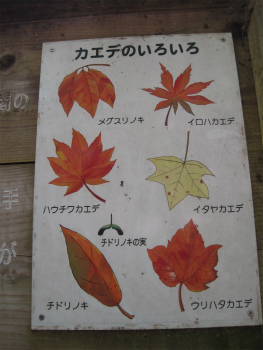 カエデのいろいろ
メグスリノキ
イロハカエデ
ハウチワカエデ
イタヤカエデ
チドリノキの実
チドリノキ
ウリハタカエデ
の
手
が